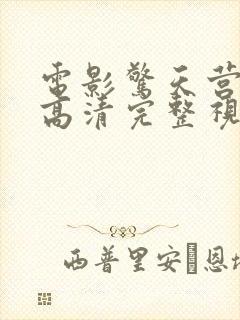 電影驚天营
高清完整視
西普里安·恩